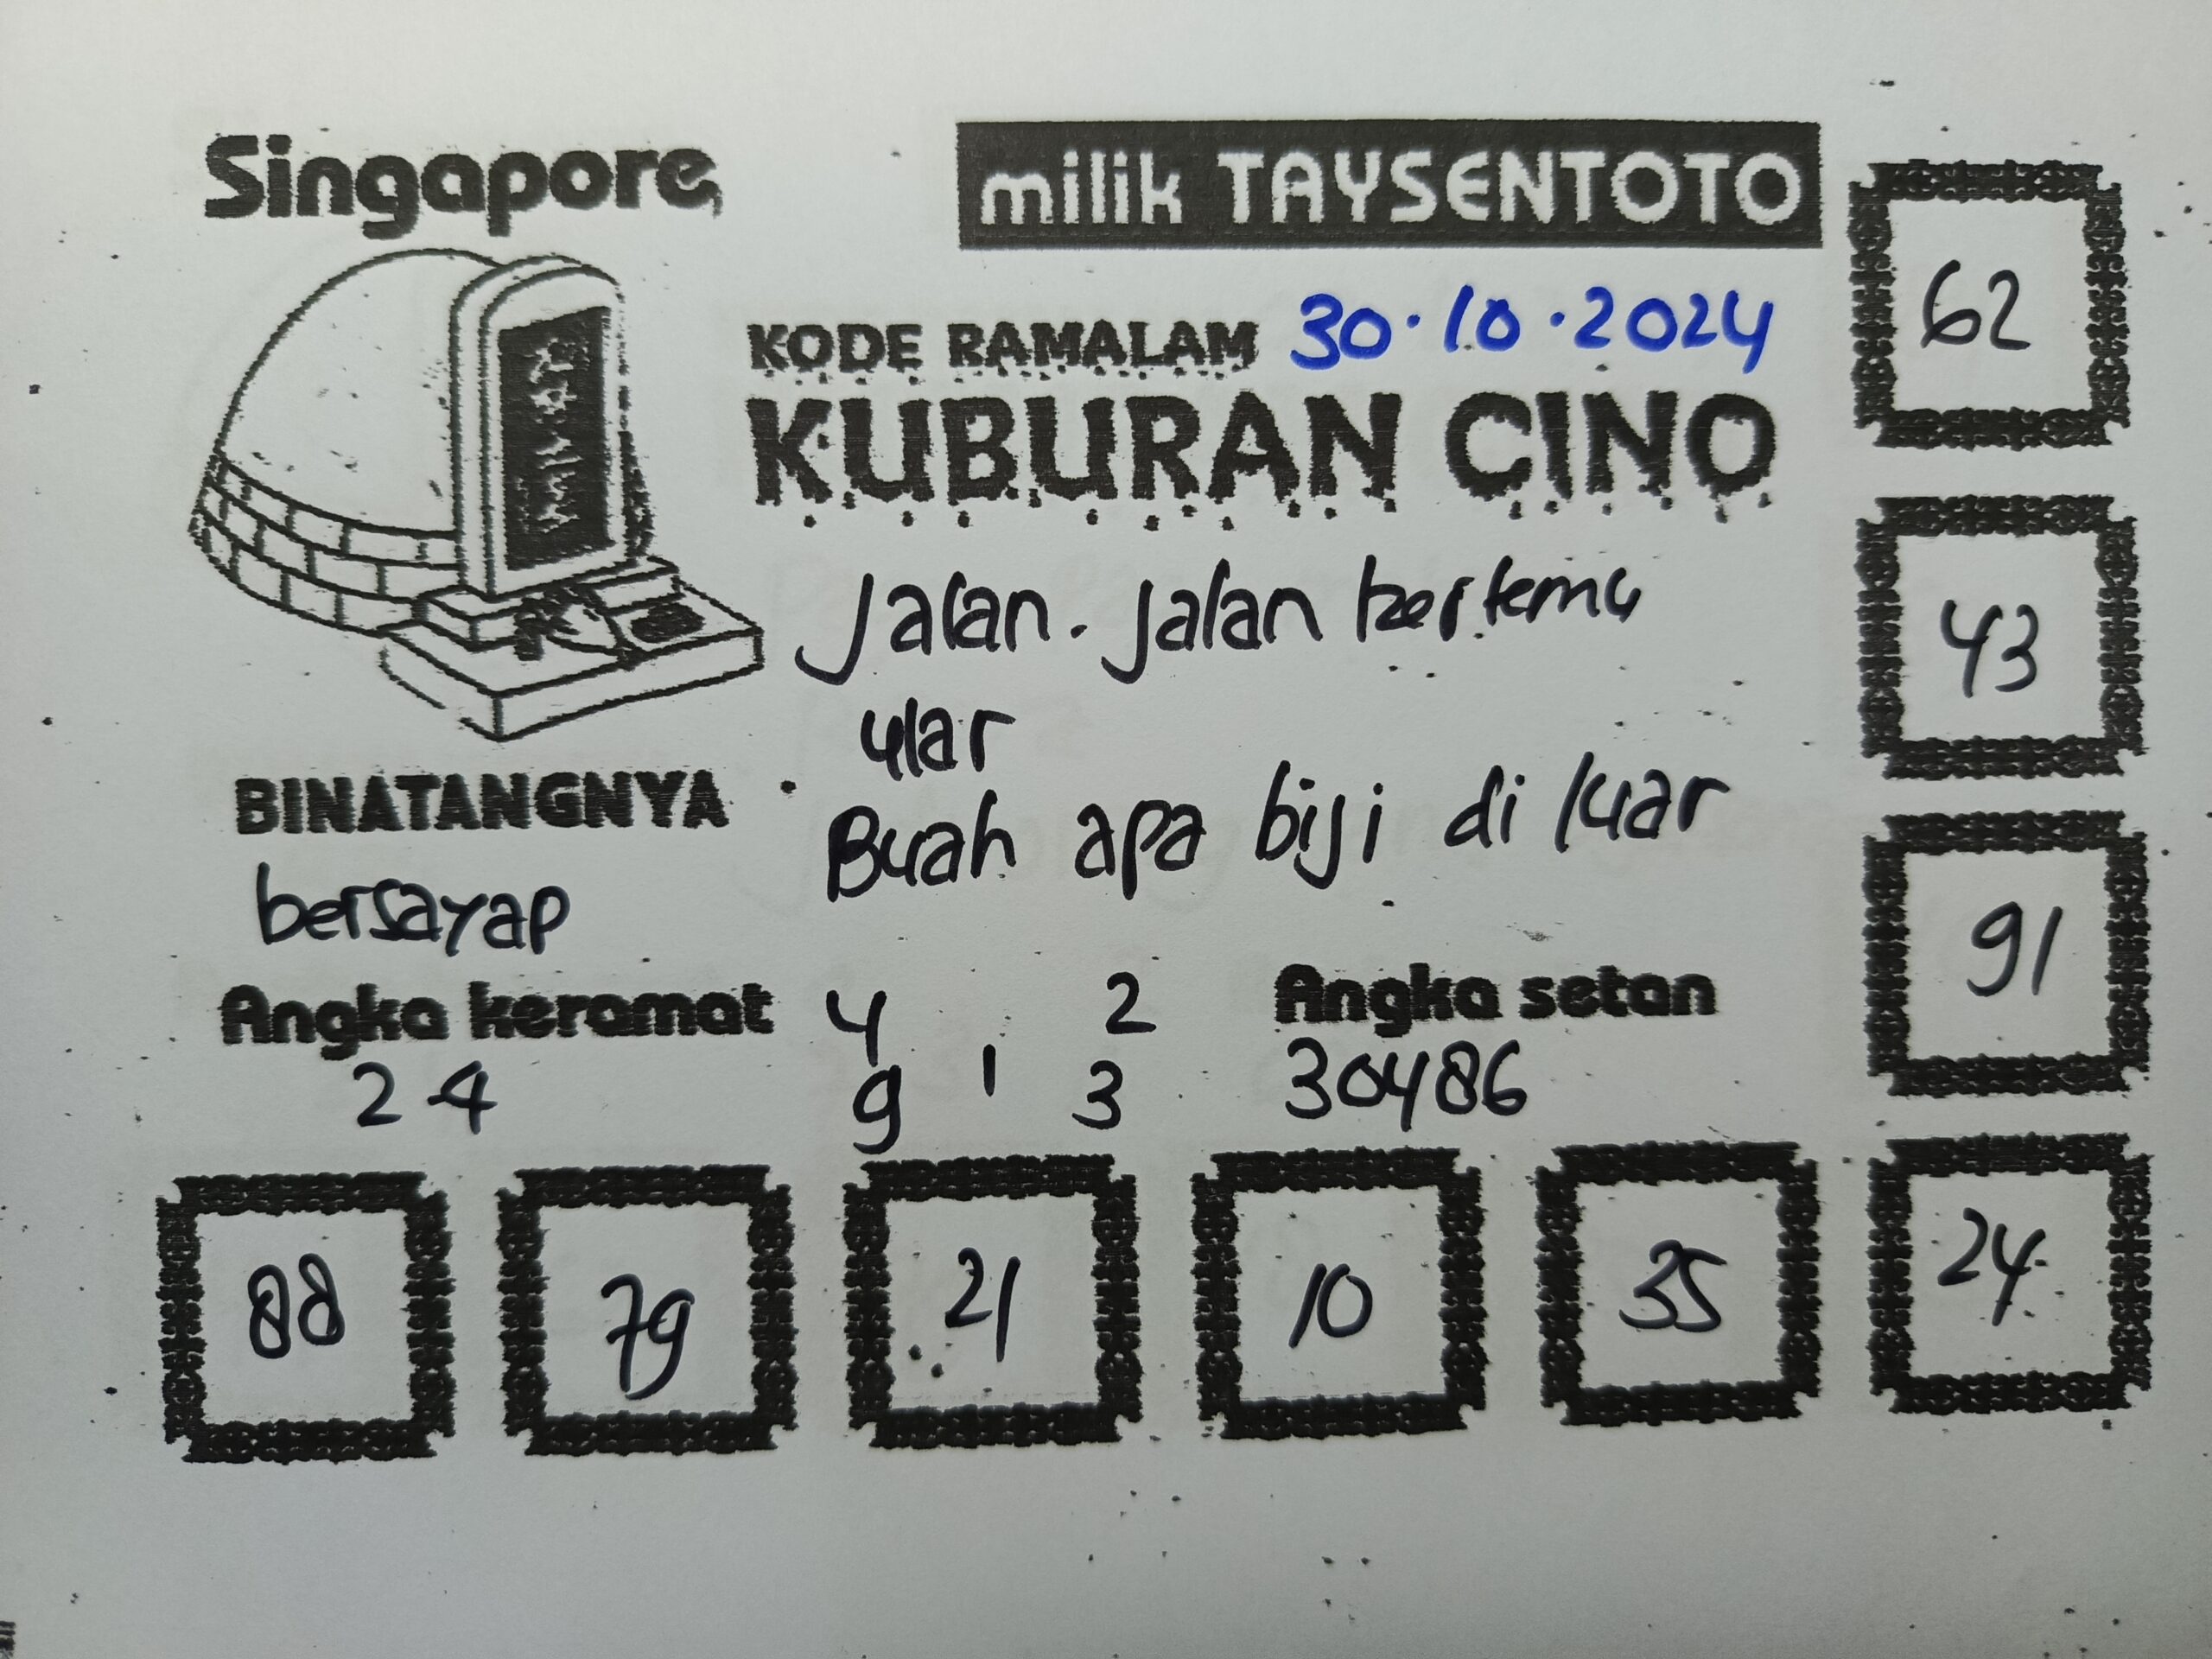 Singapore
milik TAYSENTOTO
KODE RAMALAM 30.10.2024
KUBURAN CINO
Jalan. Jalan bertemu
ular
Buah apa biji di luar
BINATANGNYA
bersayap
Angka keramat
24
4 2
9 1 3
Angka setan
30486
62
43
91
88 79 21 10 35 24